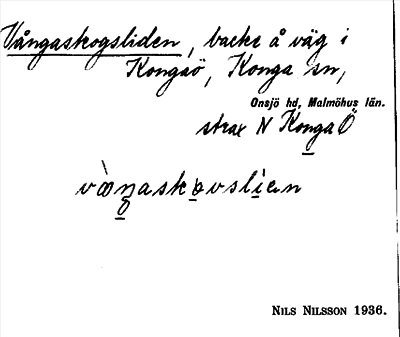 Vångaskogsliden, backe å väg i
Kongaö, Konga sn,
Onsjö hd, Malmöhus län.
strax N Konga Ö
NILS NILSSON 1936.